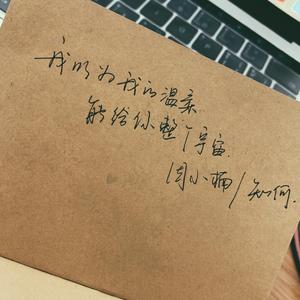 我以为我的温柔
能给你整个宇宙
周小楠/知何